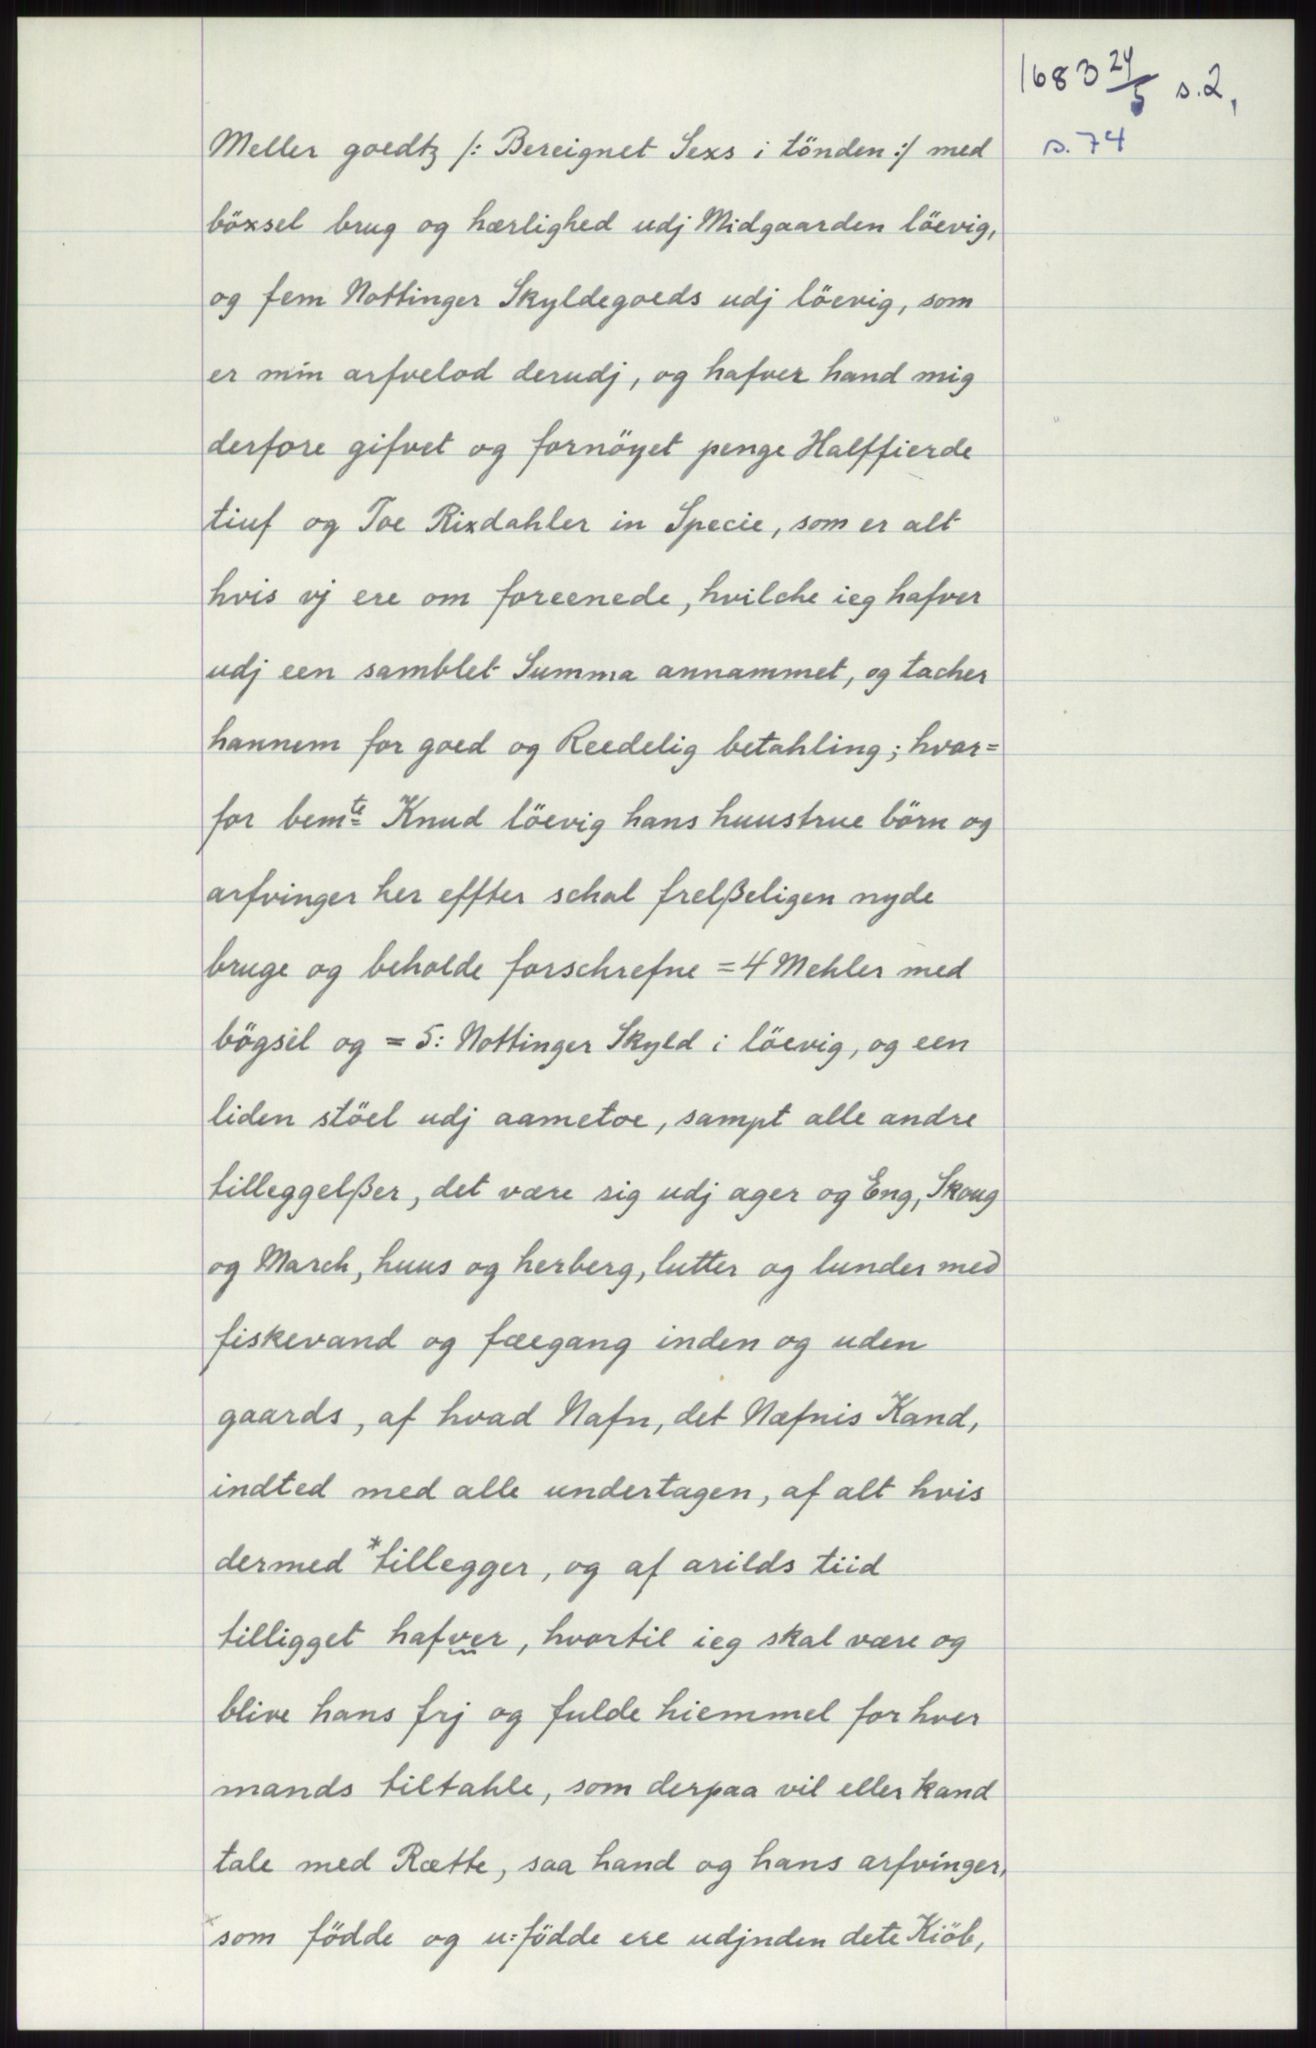 1683 24/5 s.2,
s. 74
Meller goedtz /: Bereignet Sexs i tönden :/ med
böxsel brug og hærlighed udj Midgaarden löevig,
og fem Nottinger Skyldegoeds udj löevig, som
er min arfvelod derudj, og hafver hand mig
derfore gifvet og fornöyet penge Halffierde
tiuf og Toe Rixdahler in Specie, som er alt
hvis vj ere om foreenede, hvilche ieg hafver
udj een samblet Summa annammet, og tacher
hannem for goed og Reedelig betahling; hvor=
for bemte Knud löevig hans huustrue börn og
arfvinger her effter schal frelßeligen nyde
bruge og beholde forschrefne = 4 Mehler med
bögsel og = 5: Nottinger Skyld i löevig, og een
liden stöel udj aametoe, sampt alle andre
tilleggelßer, det være sig udj ager og Eng, Skoug
og March, huus og herberg, lutter og lunder med
fiskevand og fæegang inden og uden
gaards, af hvad Nafn, det Næfnis Kand,
indted med alle undertagen, af alt hvis
dermed *tillegger, og af arilds tiid
tilligget hafver, hvortil ieg skal være og
blive hans frj og fulde hiemmel for hver
mands tiltahle, som derpaa vil eller kand
tale med Rætte, saa hand og hans arfvinger,
som födde og u:födde ere udjnden dete Kiöb,